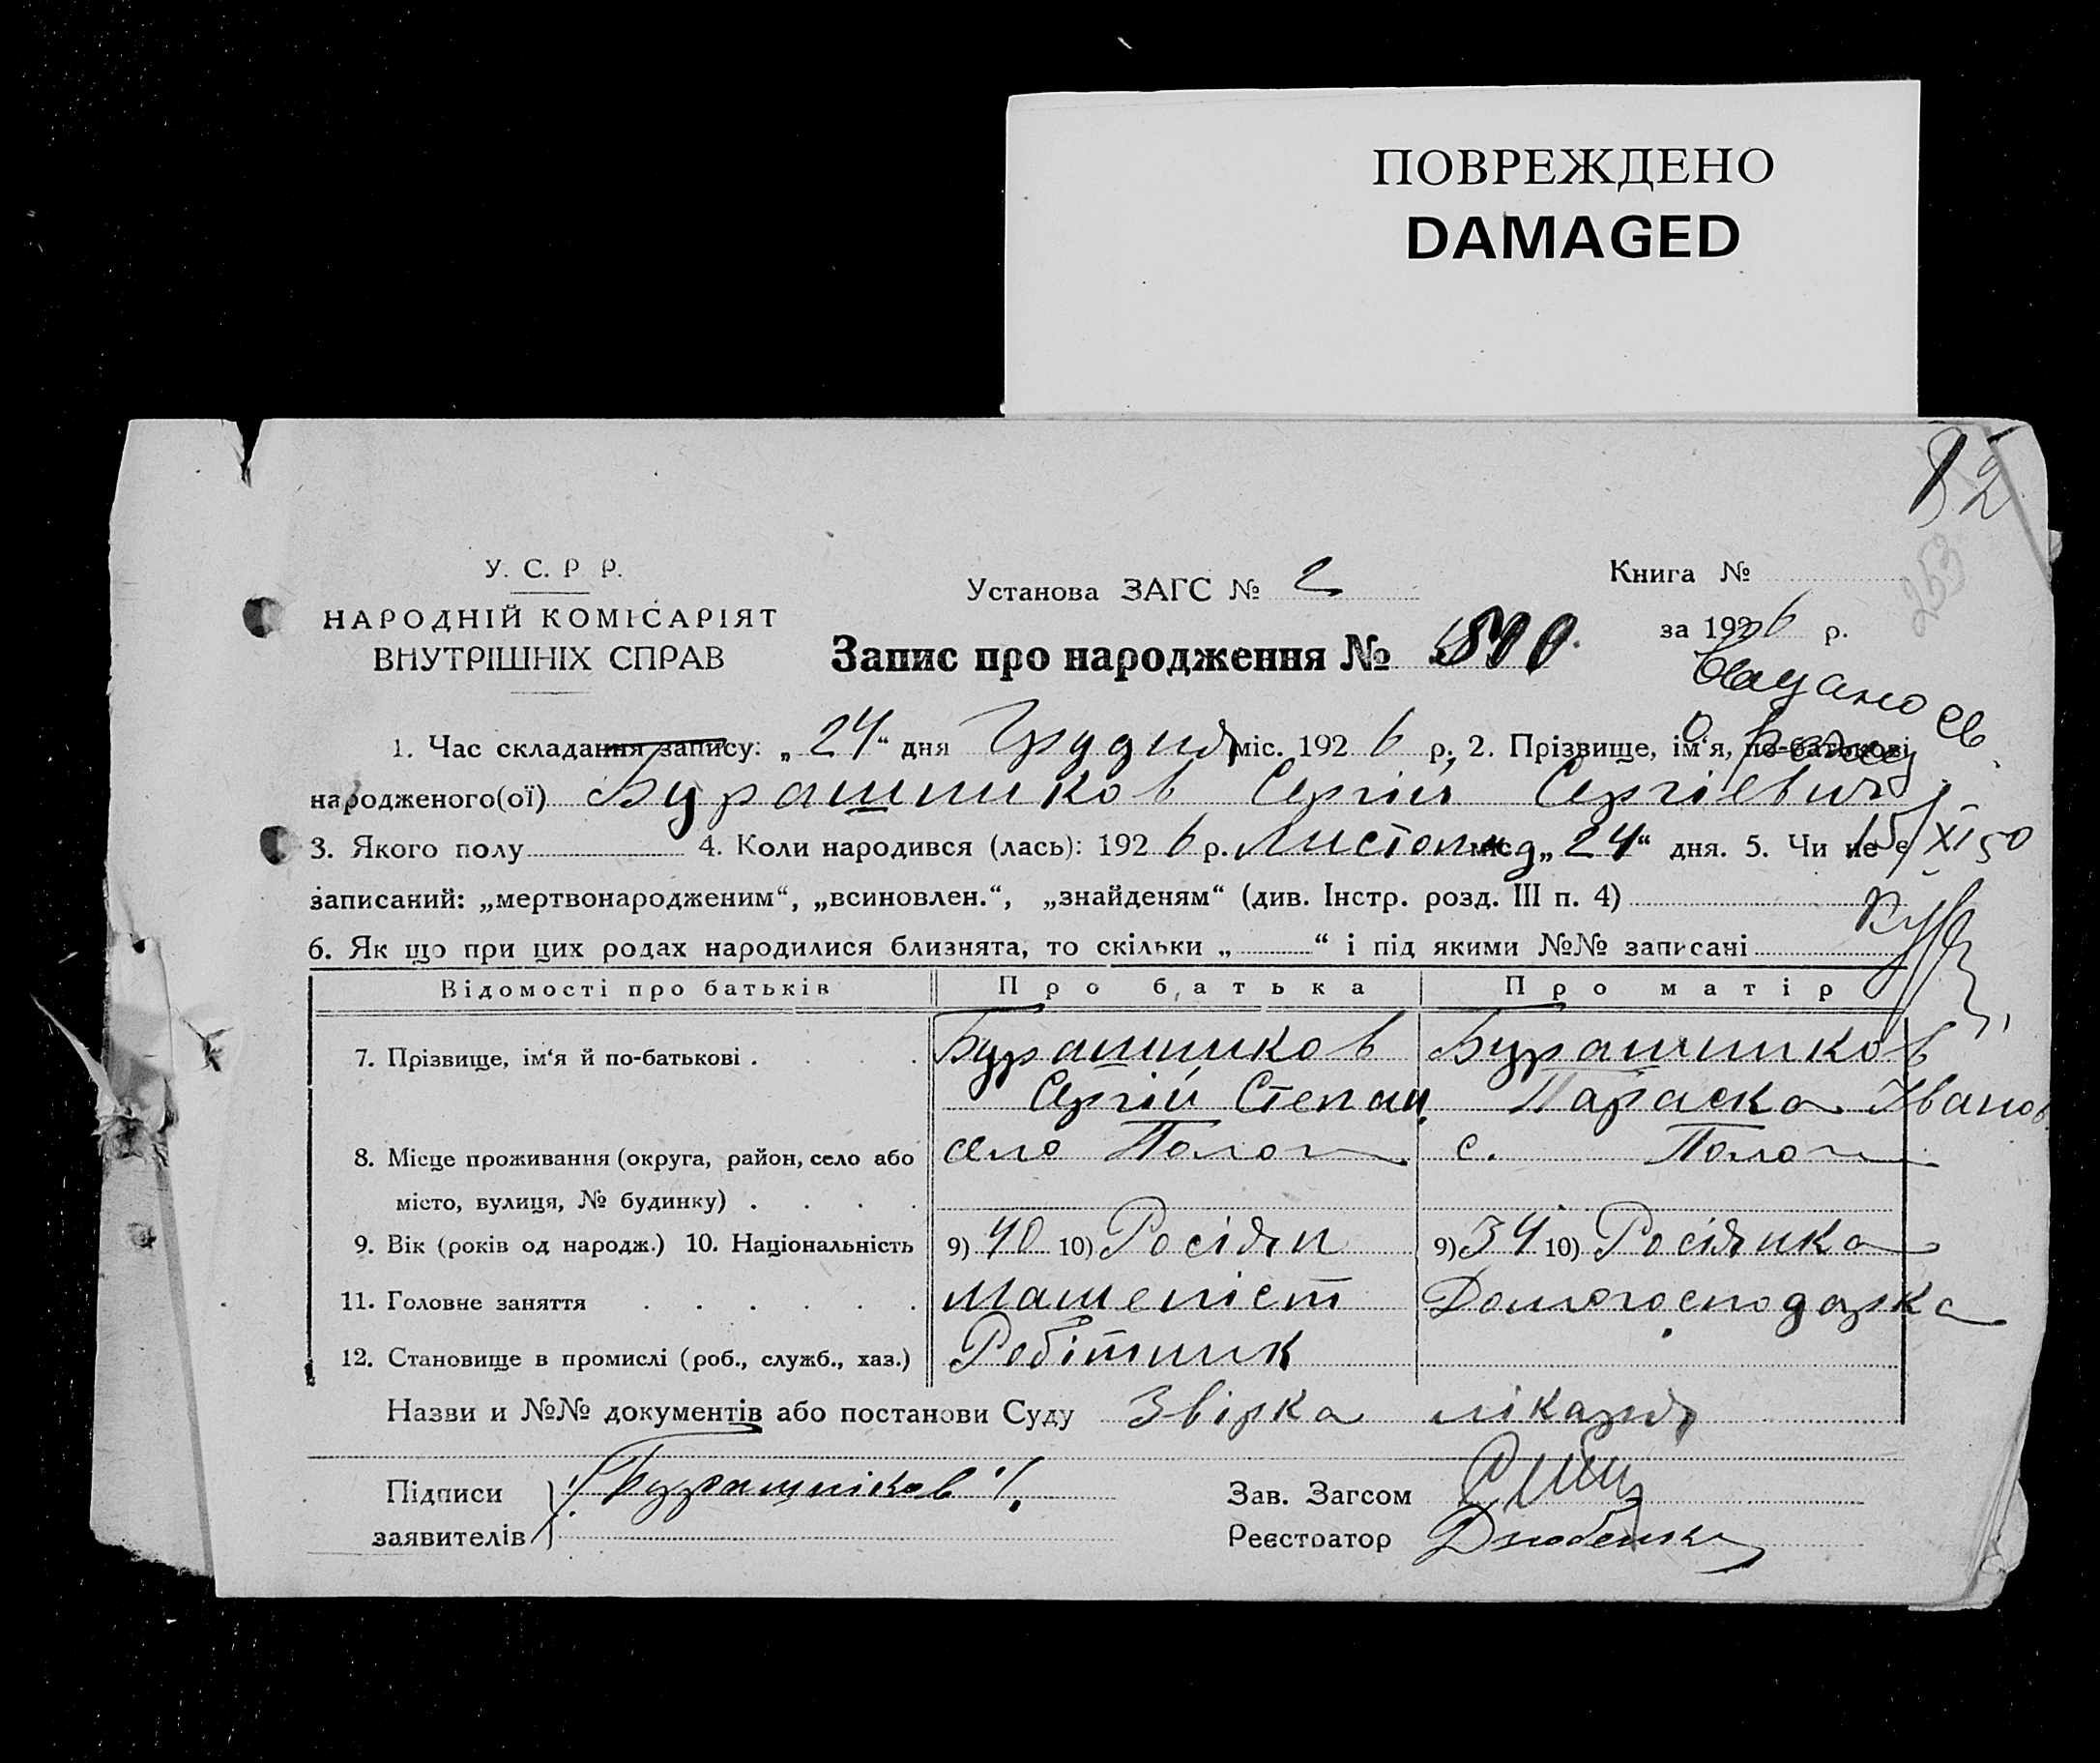 ПОВРЕЖДЕНО
DAMAGED
82
253
У. С. Р Р.
НАРОДНІЙ КОМІСАРІЯТ
ВНУТРІШНІХ СПРАВ
Установа ЗАГС № 2
Запис про народження №
Книга №
за 1926 р.
Видано св.
о рожд
1. Час складання запису: „24“ дня Грудня міс. 1926 р. 2. Прізвище, ім‘я, по-батькові
народженого(ої) Бурашников Сергій Сергієвич
15/XI 50
3. Якого полу 4. Коли народився (лась): 1926 р. Листопад міс. „24“ дня. 5. Чи не є
записаний: „мертвонародженим“, „всиновлен.“, „знайденям“ (див. Інстр. розд. III п. 4)
6. Як що при цих родах народилися близнята, то скільки „ “ і під якими №№ записані
Відомості про батьків Про батька Про матір
7. Прізвище, ім‘я й по-батькові . Бурашников Бурашников
Сергій Степан. Параска Іванов.
8. Місце проживання (округа, район, село або село Пологи с. Пологи
місто, вулиця, № будинку) .
9. Вік (років од народж.) 10. Національність 9) 40 10) Росіян 9) 34 10) Росіянка
11. Головне заняття Машеніст Домогосподарка
12. Становище в промислі (роб., служб., хаз.) Робітник
Назви и №№ документів або постанови Суду Звірка лікаря
Підписи /Бурашніков/.
заявителів
Зав. Загсом
Реєстратор